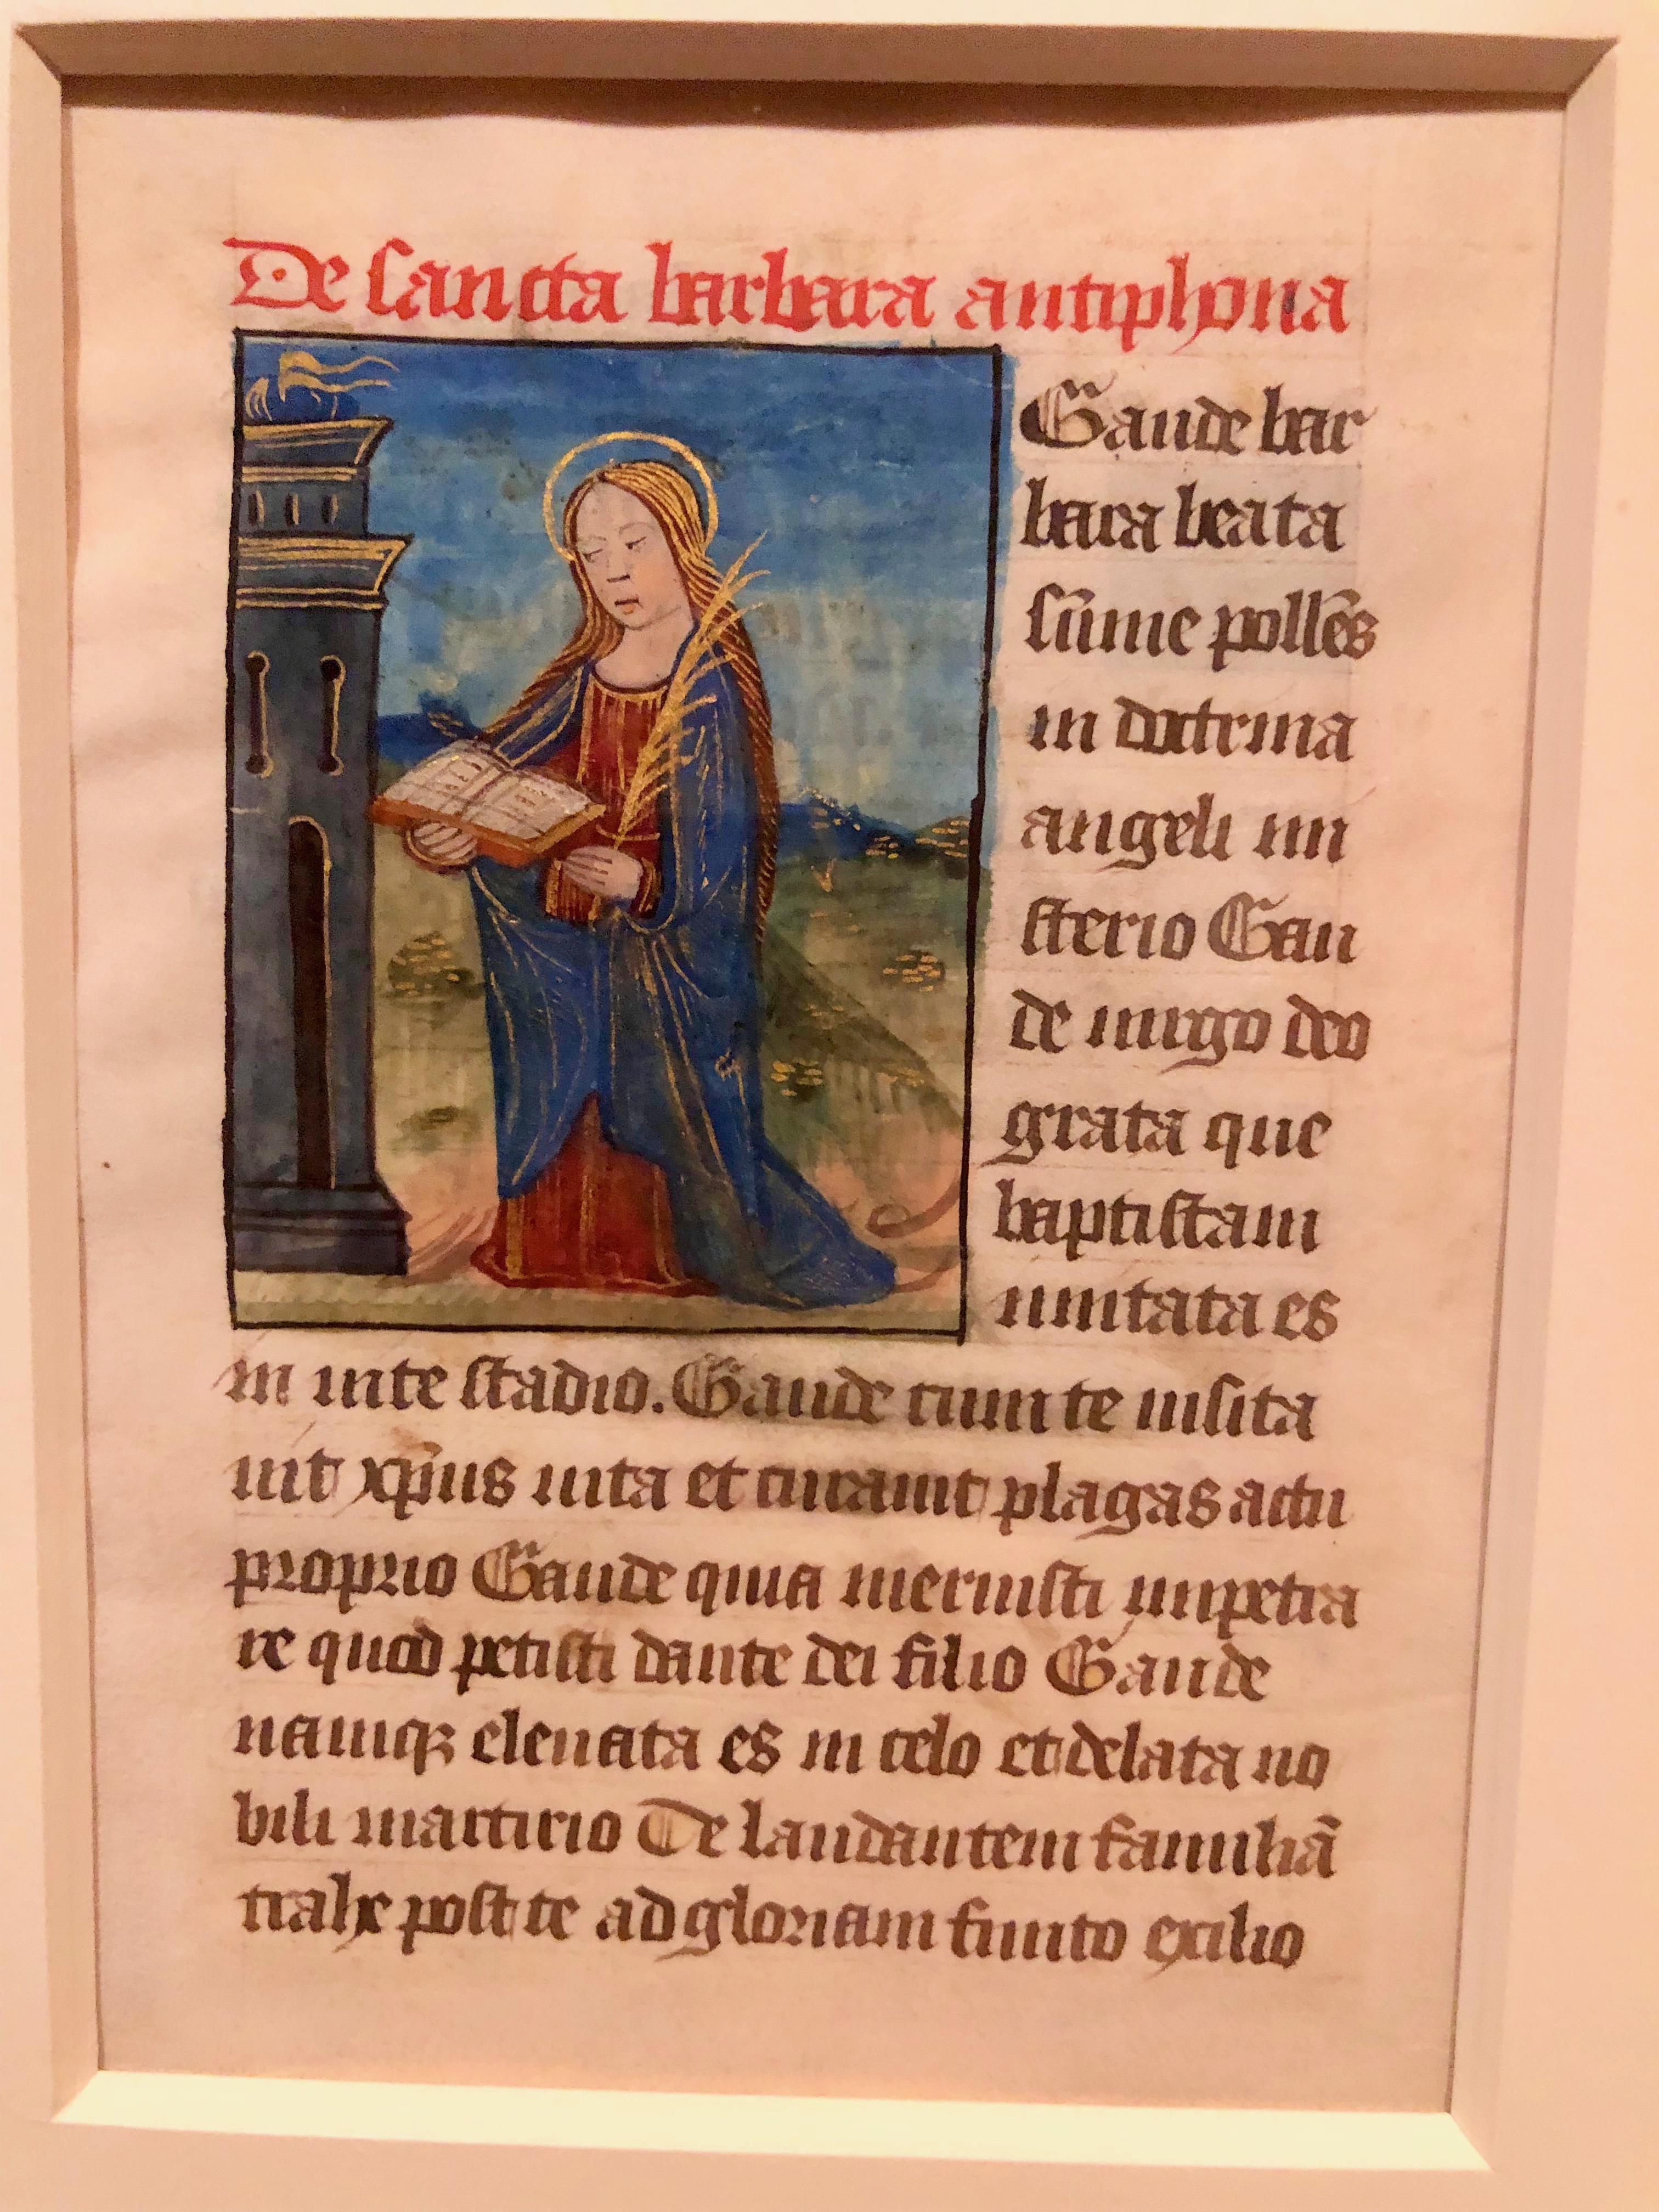 De sancta barbara antiphona
Gaude bar
bara beata
sūme pollēs
in doctrina
angeli mi
sterio Gau
de uirgo deo
grata que
baptistam
imitata es
in uite stadio. Gaude cum te uisita
uit xp̄us uita et curauit plagas actu
proprio Gaude quia meruisti impetra
re quod petisti dante dei filio Gaude
namqꝫ eleuata es in celo et delata no
bili martirio Te laudantem familiā
trahe post te ad gloriam finito exilio